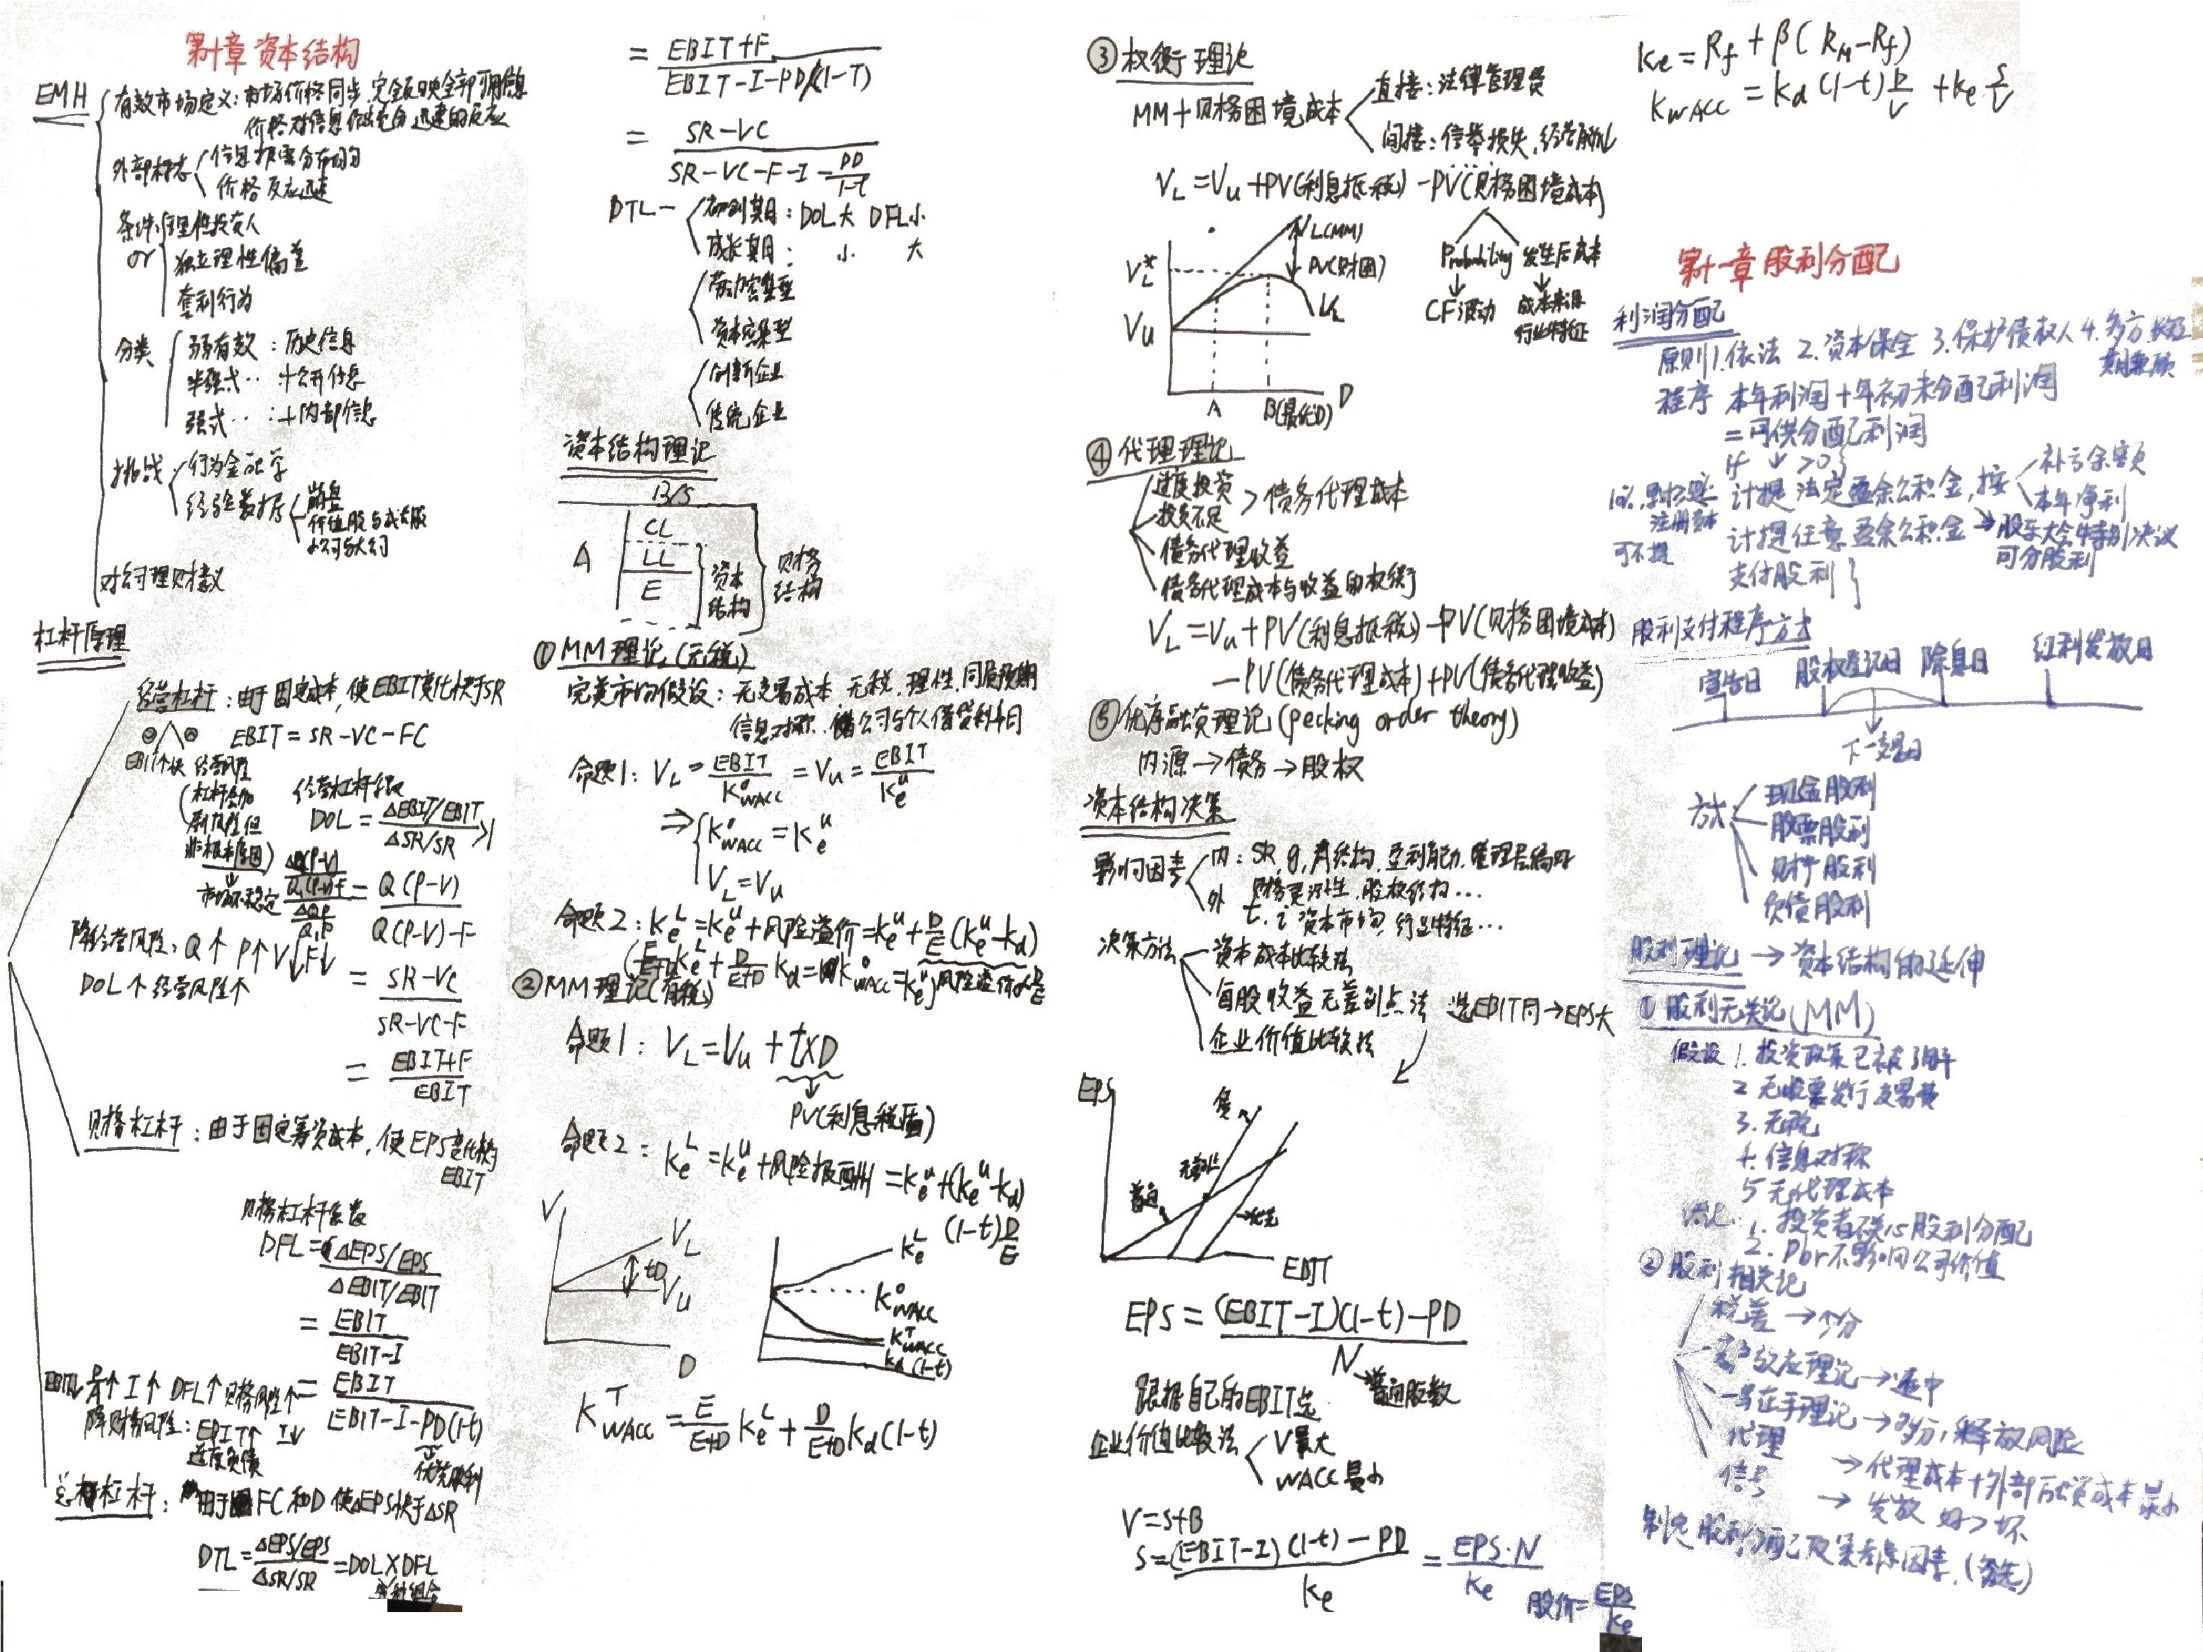 第十章 资本结构
EMH
有效市场定义：市场价格同步、完全反映全部可用信息
价格对信息做充分迅速的反应
外部标志
信息披露分布均匀
价格反应迅速
条件
or
理性投资人
独立理性偏差
套利行为
分类
弱有效：历史信息
半强式‥：+公开信息
强式‥：+内部信息
挑战
行为金融学
经验数据
价值股与成长股
小公司与大公司
对公司理财意义
杠杆原理
经营杠杆：由于固定成本，使EBIT变化快于SR
EBIT=SR-VC-FC
EBIT个快 经营风险
经营杠杆系数
DOL = (ΔEBIT/EBIT)/(ΔSR/SR) >1
市场不稳定
= Q(P-V)/(Q(P-V)-F)
降经营风险：Q↑ P↑ V↓ F↓
DOL个经营风险个
= (SR-VC)/(SR-VC-F)
= (EBIT+F)/EBIT
财务杠杆：由于固定筹资成本，使EPS变化快于
EBIT
财务杠杆系数
DFL=(ΔEPS/EPS)/(ΔEBIT/EBIT)
= EBIT/(EBIT-I)
I↑ DFL↑ 财务风险个
= EBIT/(EBIT-I-PD/(1-t))
降财务风险：EBIT↑ I↓
适度负债
优先股利
总杠杆：由于FC和D 使ΔEPS快于ΔSR
DTL=(ΔEPS/EPS)/(ΔSR/SR)=DOL×DFL
= (EBIT+F)/(EBIT-I-PD/(1-T))
= (SR-VC)/(SR-VC-F-I-PD/(1-t))
DTL—
初创期：DOL大 DFL小
成长期： 小 大
劳动密集型
资本密集型
创新企业
传统企业
资本结构理论
B/S
A
CL
LL
E
资本结构
财务结构
① MM理论（无税）
完美市场假设：无交易成本 无税、理性、同质预期
信息对称、公司与个人借贷利率同
命题1：V_L = EBIT/K⁰_WACC = V_u = EBIT/K_e^u
⇒ K⁰_WACC = K_e^u
V_L=V_u
命题2：K_e^L=K_e^u+风险溢价=K_e^u+D/E(K_e^u-K_d)
② MM理论（有税）
命题1：V_L=V_u + t×D
PV(利息税盾)
命题2：K_e^L=K_e^u+风险报酬=K_e^u+(K_e^u-K_d)
(1-t)D/E
V
V_L
tD
V_u
D
K_e^L
K⁰_WACC
K^T_WACC
K_d(1-t)
K^T_WACC = E/(E+D) K_e^L + D/(E+D) K_d(1-t)
③ 权衡理论
MM+财务困境成本
直接：法律管理费
间接：信誉损失，经营
V_L=V_u+PV(利息抵税)-PV(财务困境成本)
V_L(MM)
V_L*
PV(财困)
V_L
V_u
A
B(最优D)
D
Probability
发生后成本
CF波动
成本来源
行业特征
④ 代理理论
过度投资
投资不足
> 债务代理成本
债务代理收益
债务代理成本与收益的权衡
V_L=V_u+PV(利息抵税)-PV(财务困境成本)
-PV(债务代理成本)+PV(债务代理收益)
⑤ 优序融资理论(pecking order theory)
内源→债务→股权
资本结构决策
影响因素
内：SR、g、资结构、盈利能力、管理层偏好
财务灵活性、股权结构…
外 t、i 资本市场、行业特征…
决策方法
资本成本比较法
每股收益无差别点法 选EBIT同→EPS大
企业价值比较法
EPS
负
无差别点
普通
优先
EBIT
EPS = ((EBIT-I)(1-t)-PD)/N
普通股数
跟据自己的EBIT选
企业价值比较法
V最大
WACC最小
V=S+B
S=((EBIT-I)(1-t)-PD)/K_e = EPS·N/K_e
股价=EPS/K_e
K_e=R_f+β(R_M-R_f)
K_WACC=K_d(1-t)B/V+K_e S/V
第十一章 股利分配
利润分配
原则 1.依法 2.资本保全 3.保护债权人 4.多方长短
期兼顾
程序 本年利润+年初未分配利润
=可供分配利润
if ↓ >0
计提法定盈余公积金，按
补亏余额
本年净利
注册资本
可不提
计提任意盈余公积金 → 股东大会特别决议
可分股利
支付股利
股利支付程序方式
宣告日
股权登记日
除息日
红利发放日
下一交易日
方式
现金股利
股票股利
财产股利
负债股利
股利理论 → 资本结构的延伸
① 股利无关论(MM)
假设 1.投资政策已被了解
2.无股票发行交易费
3.无税
4.信息对称
5.无代理成本
结论 1.投资者不关心股利分配
2.Dpr不影响公司价值
② 股利相关论
税差→少分
客户效应理论→适中
一鸟在手理论→多分，释放风险
代理→代理成本+外部融资成本最小
信号→发放 好>坏
制定股利分配政策考虑因素